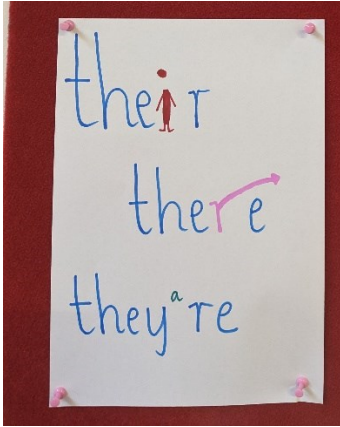 their
there
they're